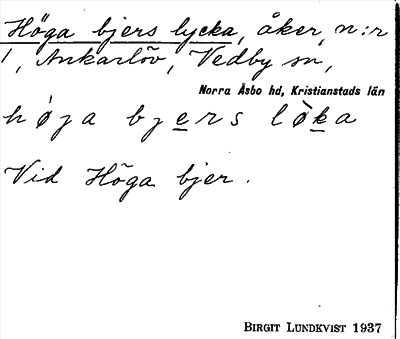 Höga bjers lycka, åker, n:r
1, Ankarlöv, Vedby sn,
Norra Åsbo hd, Kristianstads län
høja bjers lòka
Vid Höga bjer.
BIRGIT LUNDKVIST 1937